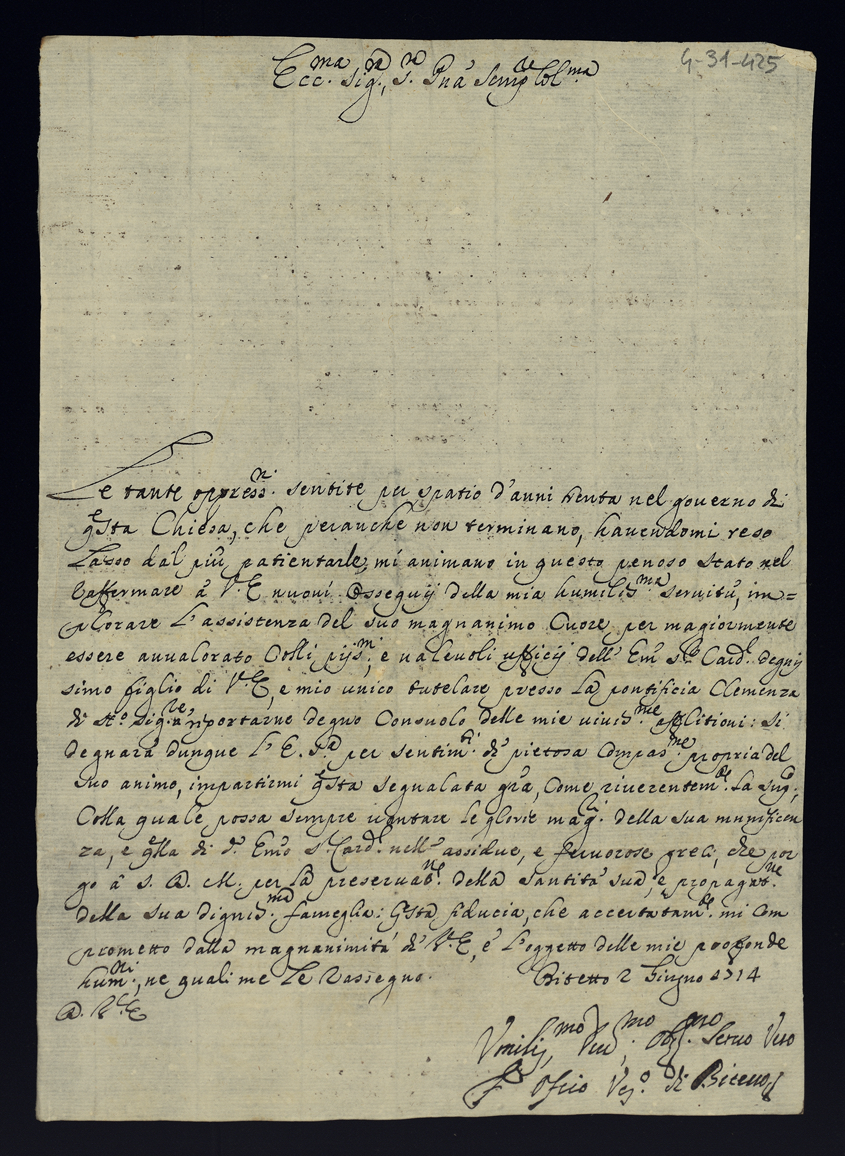 G-31-425
Ecc.ma Sig.ra, S.ra Pnā Semp.re Col.ma
Le tante oppress.ni sentite per spatio d'anni trenta nel governo di
q̄sta Chiesa, che peranche non terminano, havendomi reso
lasso dal più patientarle, mi animano in questo penoso stato nel
raffermare à V.E nuovi osseguij della mia humiliss.ma servitù, im=
plorare l'assistenza del suo magnanimo Cuore per magiormente
essere avvalorato colli pijs.mi, e valevoli ufficij dell' Em̄o S.r Card.l degnis
simo figlio di V.E, e mio unico tutelare presso la pontificia Clemenza
di N.ro Sig.re, riportarne degno Consuolo delle mie viviss.me afflitioni: Si
degnarà dunque l'E. S.a per sentim.ti di pietosa compass.ne propria del
suo animo, impartirmi q̄sta segnalata grā, come riverentem.te la sup.co,
Colla quale possa sempre vantare le glorie mag.ri della sua munificen
za, e q̄lla di d.o Em̄o S.r Card.l nell' assidue, e fervorose preci, che por
go à S. D. M. per la preservat.ne della Santità sua, e propagat.ne
della sua dignis.ma fameglia: q̄sta fiducia, che accertatam.te mi com
prometto dalla magnanimità di V.E, è l'oggetto delle mie profonde
hum.ni, ne quali me le rassegno. Bitetto 2 Giugno 1714
D. V.E
Umiliss.mo Dev.mo Obl.mo Servo Vero
Vesc.o di Bitetto